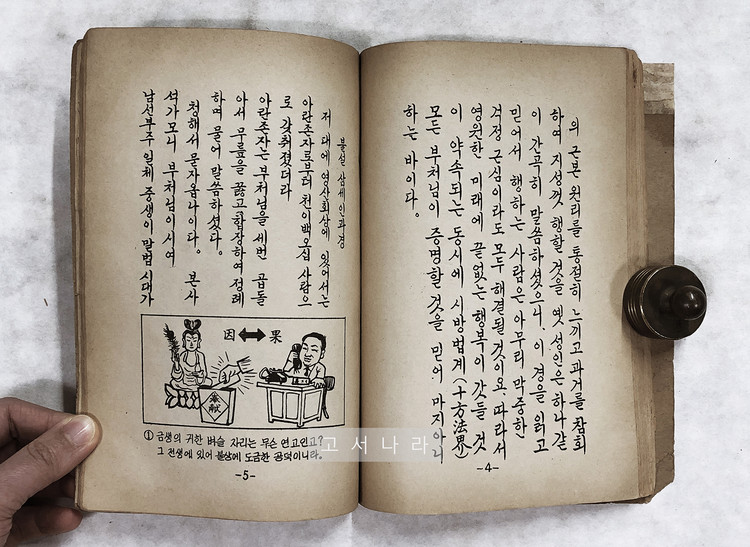 의 근본 원리를 통절히 느끼고 과거를 참회
하여 지성껏 행할 것을 옛 성인은 하나같
이 간곡히 말씀하셨으니, 이 경을 읽고
믿어서 행하는 사람은 아무리 막중한
걱정 근심이라도 모두 해결될 것이오, 따라서
영원한 미래에 끝없는 행복이 갓들 것
이 약속되는 동시에 시방법계(十方法界)
모든 부처님이 증명할 것을 믿어 마지아니
하는 바이다。
-4-
불설 삼세인과경
저 때에 영산회상에 있어서는
아란존자로부터 천이백오십 사람으
로 갖춰졌더라
아란존자는 부처님을 세번 곱돌
아서 무릎을 꿇고 합장하여 정례
하며 물어 말씀하셨다。
청해서 묻자옵나이다。 본사
석가모니 부처님이시여
남선부주 일체 중생이 말법 시대가
因 ↔ 果
奉献
① 금생의 귀한 벼슬 자리는 무슨 연고인고?
그 전생에 있어 불상에 도금한 공덕이니라.
-5-
고서나라